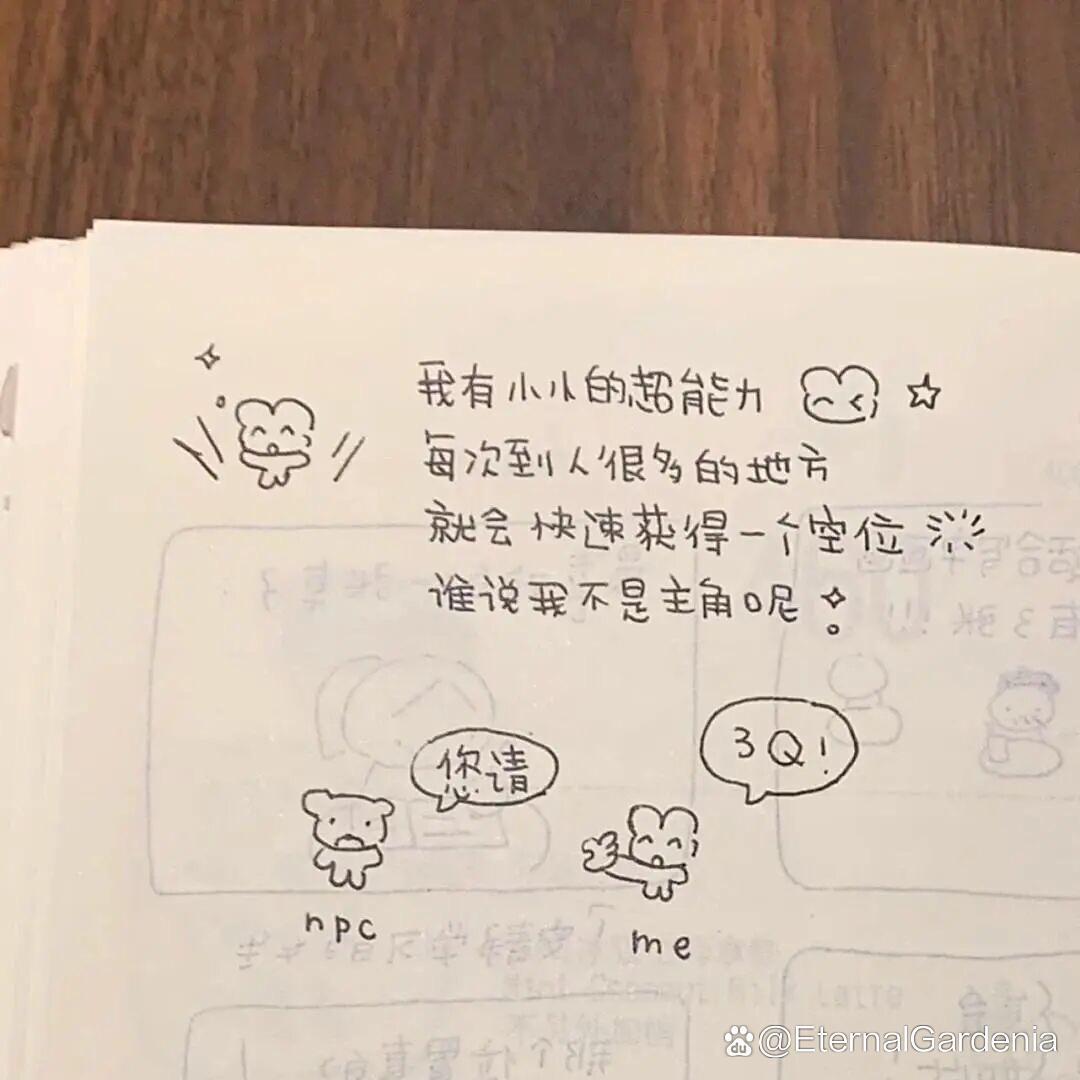 我有小小的超能力
每次到人很多的地方
就会快速获得一个空位
谁说我不是主角呢
您请
3Q!
npc
me
@EternalGardenia